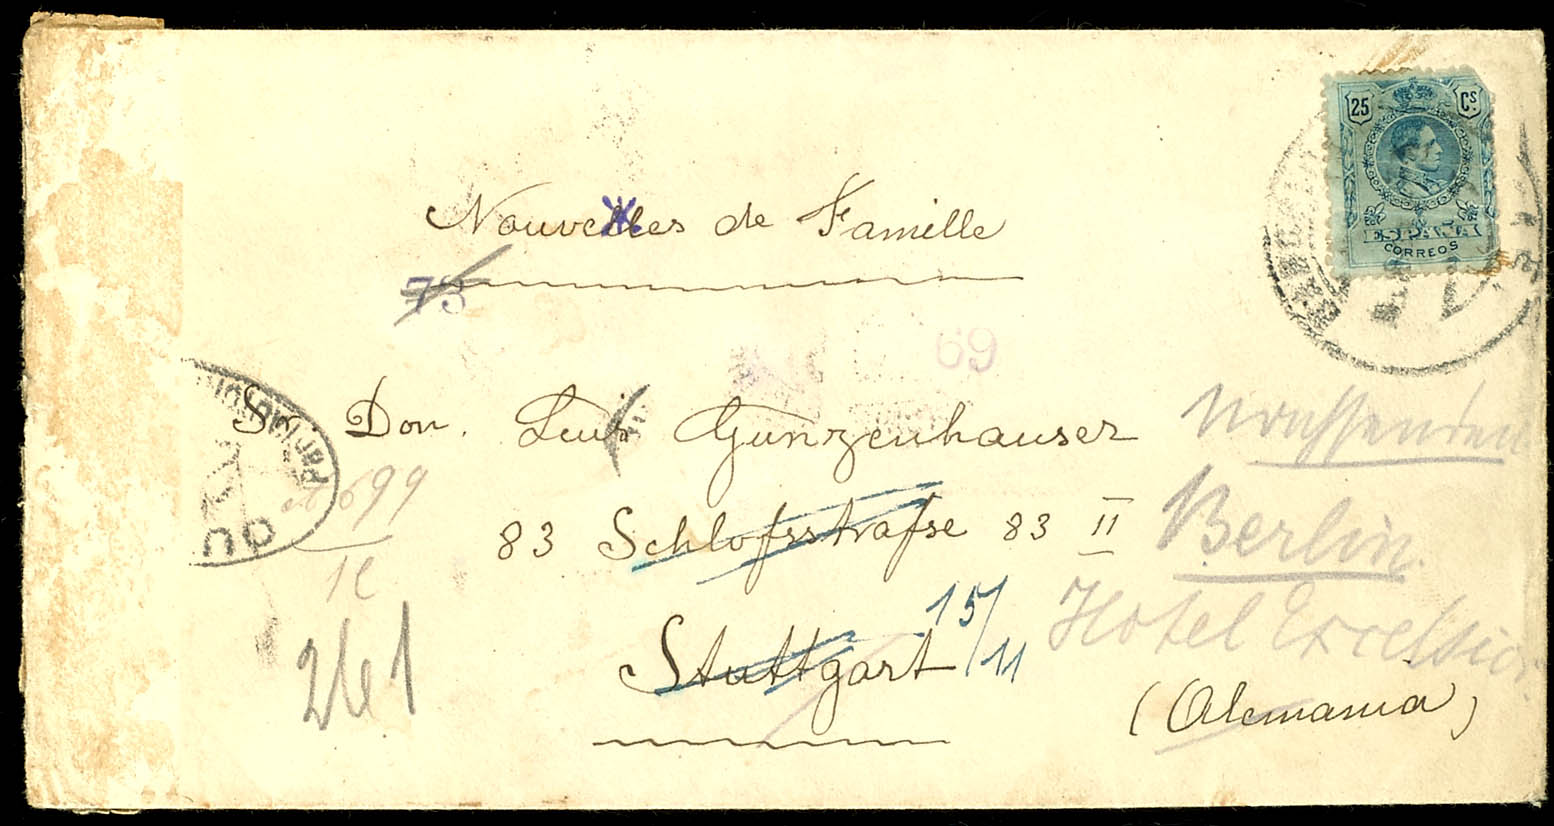 25 Cs.
ESPAÑA
CORREOS
Nouvelles de Famille
75
69
Sr Don. Gunzenhauser
83 Schloſsstraſse 83 II
Stuttgart
15/11
(Alemania)
Berlin.
Hotel Excelsior.
699
261